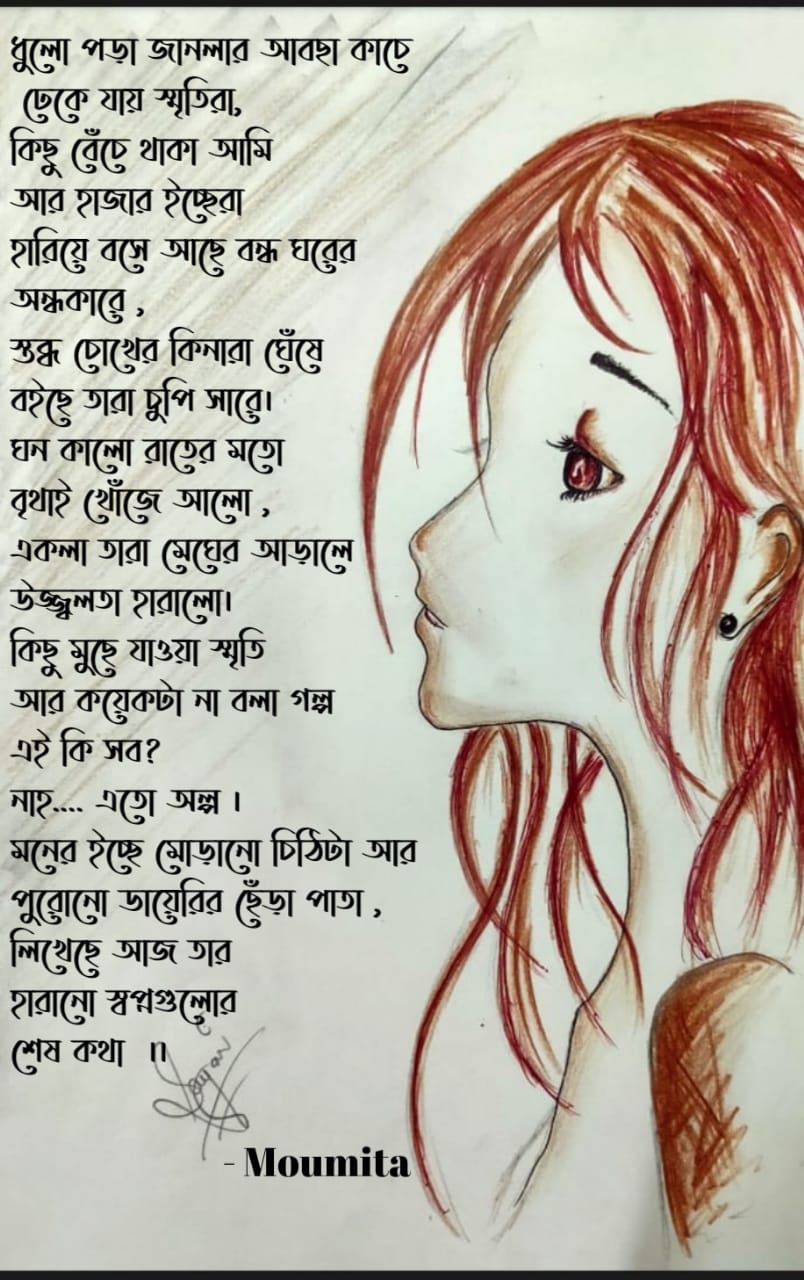 ধুলো পড়া জানলার আবছা কাচে
ঢেকে যায় স্মৃতিরা,
কিছু বেঁচে থাকা আমি
আর হাজার ইচ্ছেরা
হারিয়ে বসে আছে বন্ধ ঘরের
অন্ধকারে ,
স্তব্ধ চোখের কিনারা ঘেঁষে
বইছে তারা চুপি সারে।
ঘন কালো রাতের মতো
বৃথাই খোঁজে আলো ,
একলা তারা মেঘের আড়ালে
উজ্জ্বলতা হারালো।
কিছু মুছে যাওয়া স্মৃতি
আর কয়েকটা না বলা গল্প
এই কি সব?
নাহ.... এতো অল্প ।
মনের ইচ্ছে মোড়ানো চিঠিটা আর
পুরোনো ডায়েরির ছেঁড়া পাতা ,
লিখেছে আজ তার
হারানো স্বপ্নগুলোর
শেষ কথা ॥
- Moumita